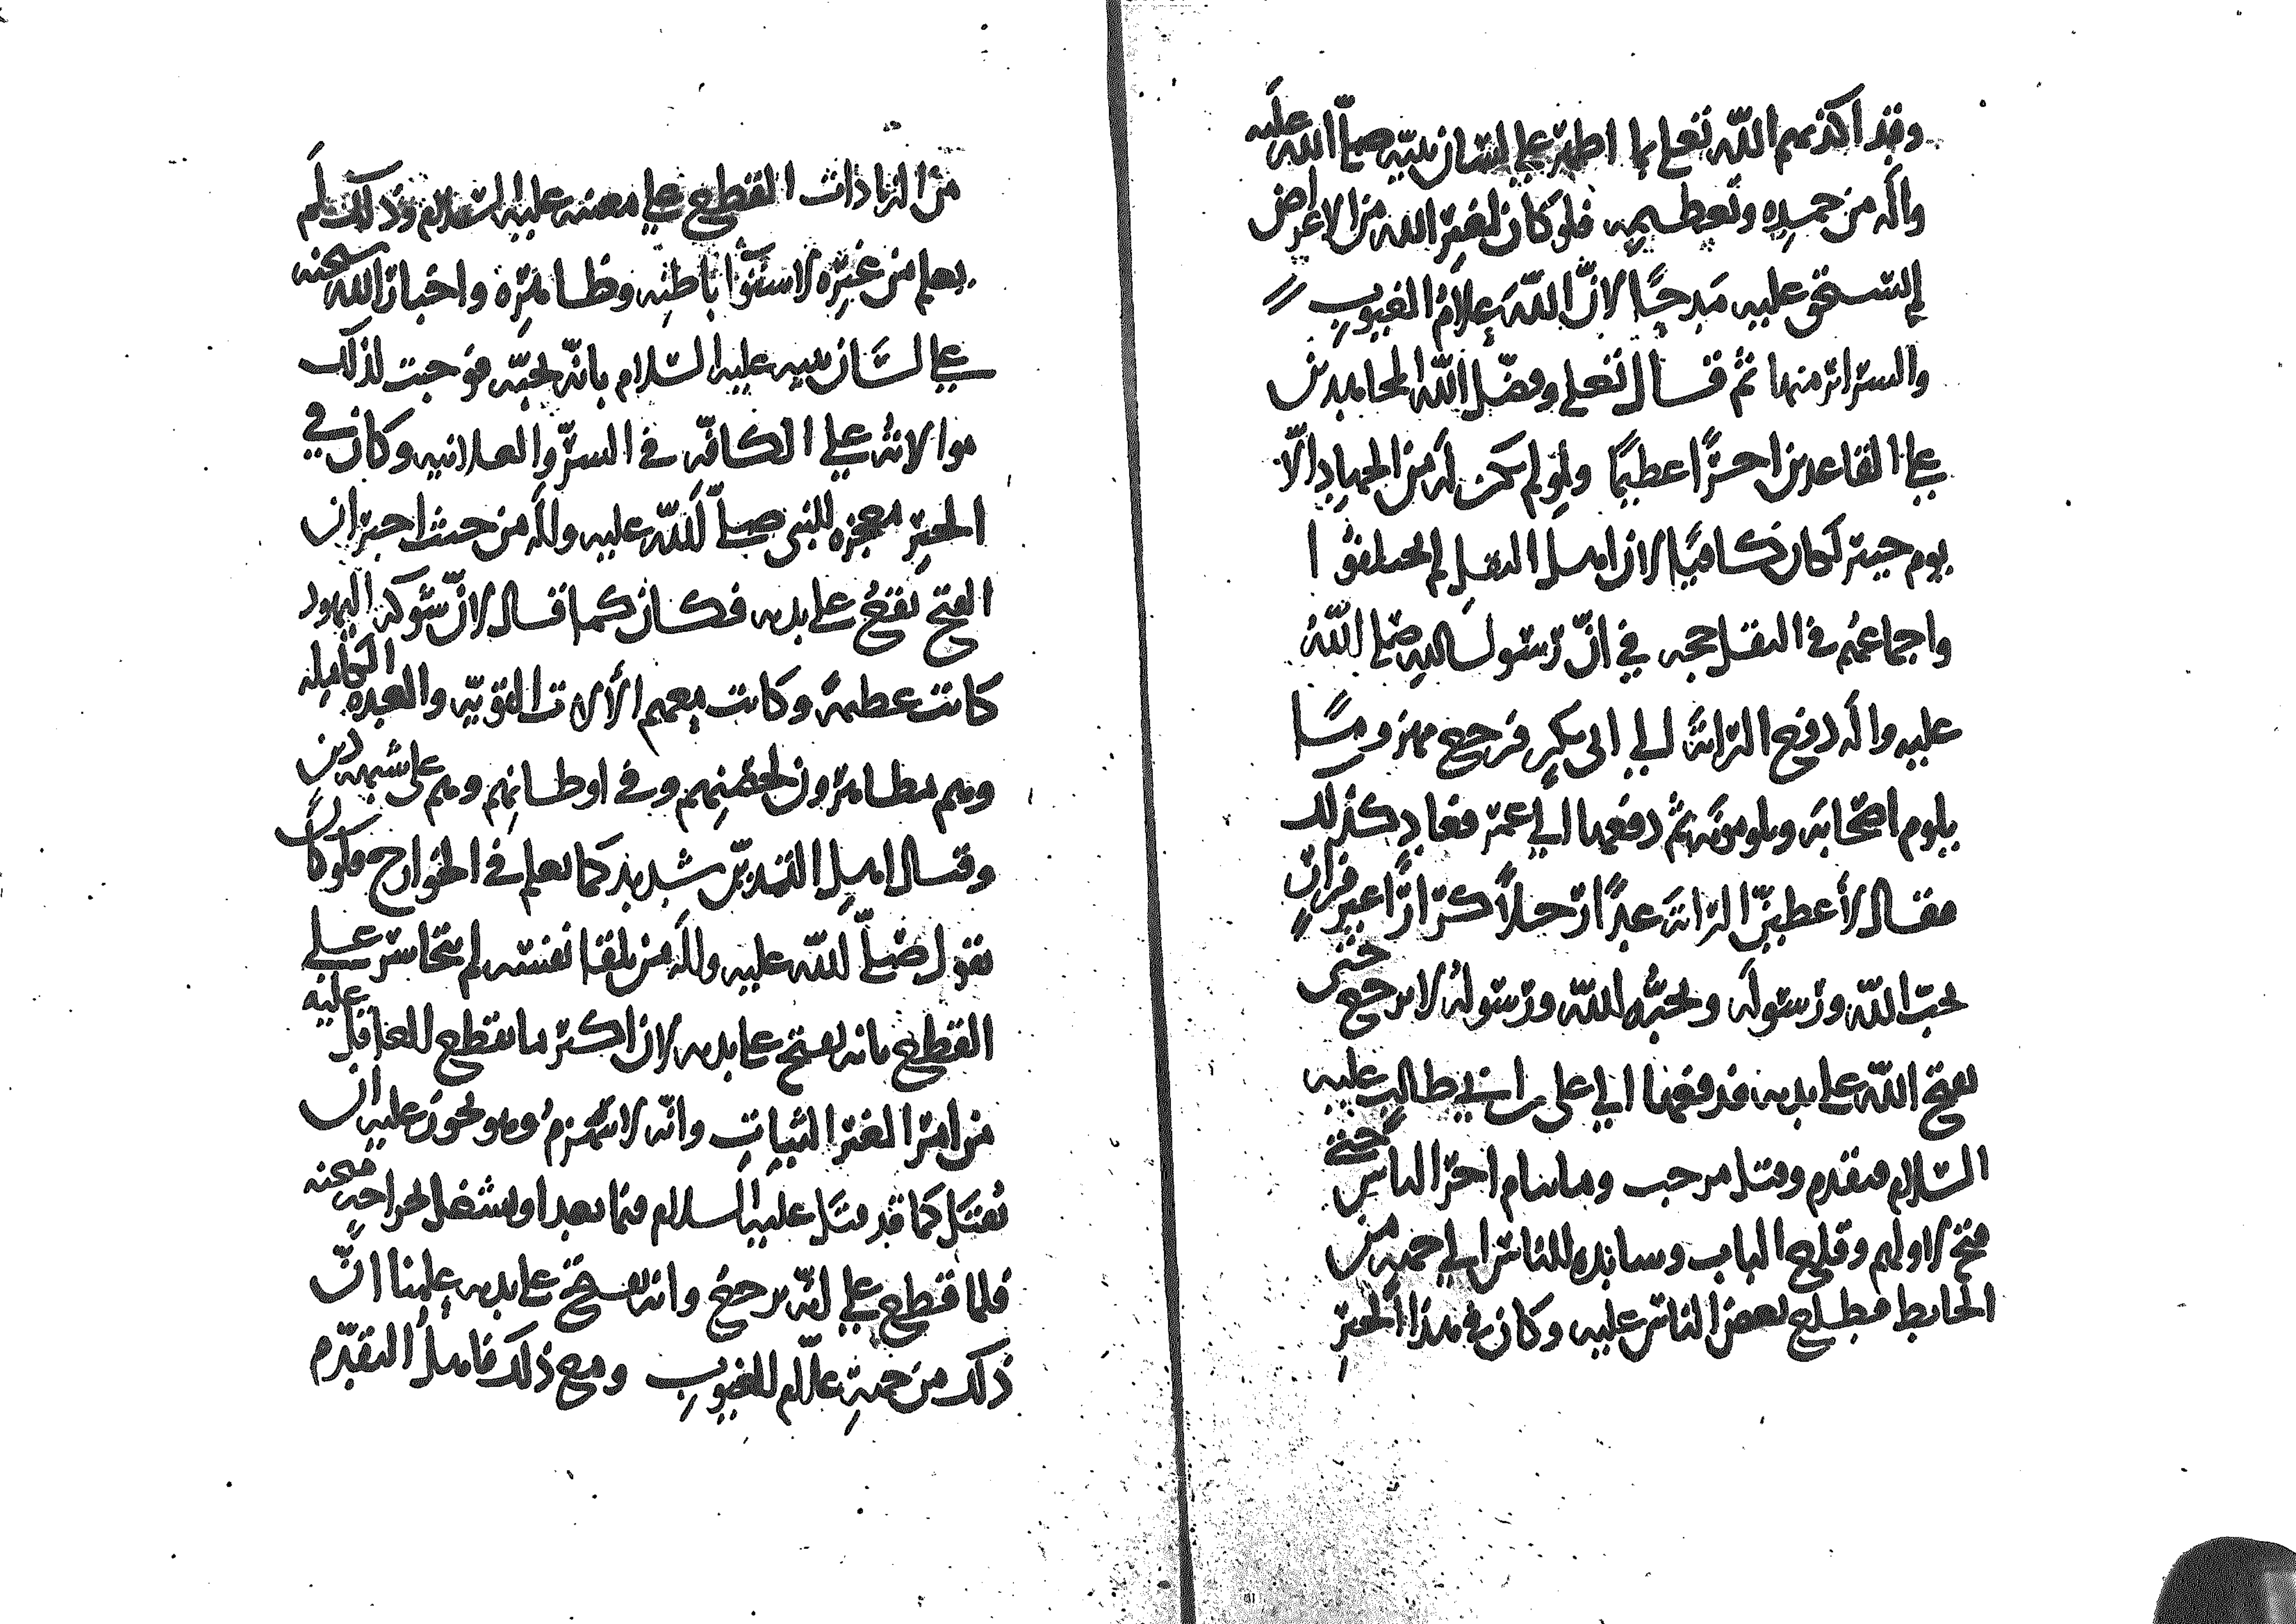 وقد اكذبهم الله تعلى بما اظهر على لسان نبيه صلى الله عليه
واله من حمده وتعظيمه فلو كان لغير الله من الاغراض
لم يستحق عليه مدحًا لان الله علام الغيوب
والسرائر منها ثم قال تعلى وفضل الله المجاهدين
على القاعدين اجرًا عظيمًا ولو لم يكن له من الجهاد الا
يوم خيبر لكان كافيًا لان اهل النقل لم يختلفوا
واجماعهم في النقل حجه في ان رسول الله صلى الله
عليه واله دفع الراية الى ابى بكر فرجع مهزومًا
يلوم اصحابه ويلومونه ثم دفعها الى عمر فعاد كذلك
فقال لأعطين الراية غدًا رجلاً كرارًا غير فرارٍ
يحب الله ورسوله ويحبه الله ورسوله لا يرجع حتى
يفتح الله على يديه فدفعها الى على بن ابي طالب عليه
السلام فتقدم وقتل مرحب وما نام اخر الناس حتى
فتح لاولهم وقلع الباب وسانده للناس الى جهه من
الحايط فطلع بعض الناس عليه وكان في هذا الخبر
من الزيادات القطع على مغيبه عليه السلام وذلك لم
يعلم من غيره لاستوا باطنه وظاهره واخبار الله سبحنه
على لسان نبيه عليه السلام بانه يحبه فوجبت لذلك
موالاته على الكافه في السر والعلانيه وكان في
الخبر معجزه للنبى صلى الله عليه واله من حيث اخبر ان
الفتح يفتح على يديه فكان كما قال لان شوكه اليهود
كانت عظيمة وكانت معهم الألات القويه والعده الكامله
وهم متظاهرون لحصنهم وفي اوطانهم وهم على شبهه دين
وقتال اهل التدين شديد كما يعلم في الخوارج فلو كان
يقول صلى الله عليه واله من تلقا نفسه لم يتجاسر على
القطع بانه يفتح على يديه لان اكثر ما يقطع العاقل عليه
من امر الغير الثبات وانه لا ينهزم وهو يجوز عليه ان
يقتل كما قد قتل عليه السلام فيما بعد او يشغل بجراحه
فلما قطع على انه يرجع وانه يفتح على يديه علمنا ان
ذلك من جهة علام الغيوب ومع ذلك فاهل التقدم